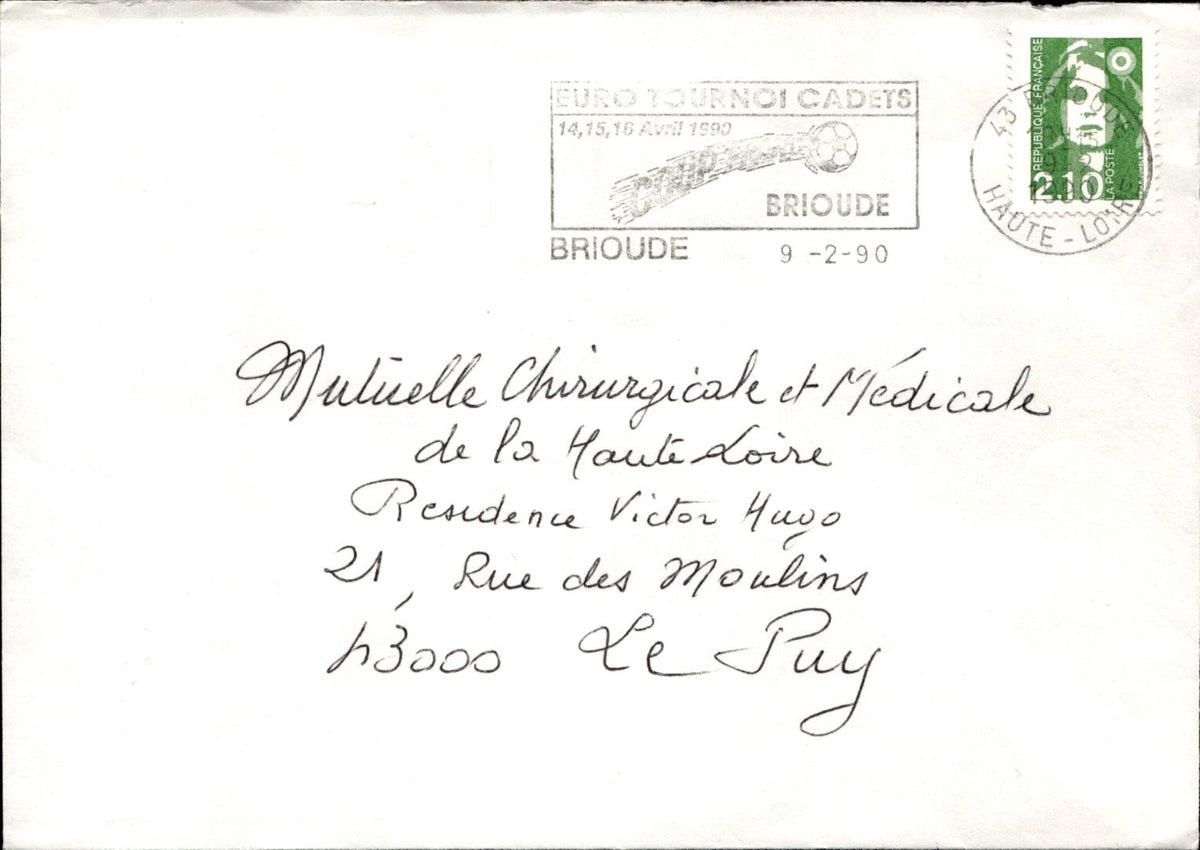 EURO TOURNOI CADETS
14,15,16 Avril 1990
COUP
BRIOUDE
BRIOUDE 9 -2-90
RÉPUBLIQUE FRANÇAISE
2,10
LA POSTE
43 BRIOUDE
9-2
1990
HAUTE - LOIRE
Mutuelle Chirurgicale et Médicale
de la Haute Loire
Residence Victor Hugo
21, Rue des Moulins
43000 Le Puy